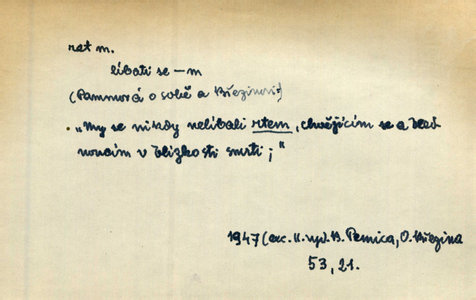 ret m.
líbati se – m
(Pammrová o sobě a Březinovi:)
„My se nikdy nelíbali rtem, chvějícím se a bled
noucím v blízkosti smrti;“
1947 (exc. II. vyd. B. Pernica, O. Březina
53, 21.